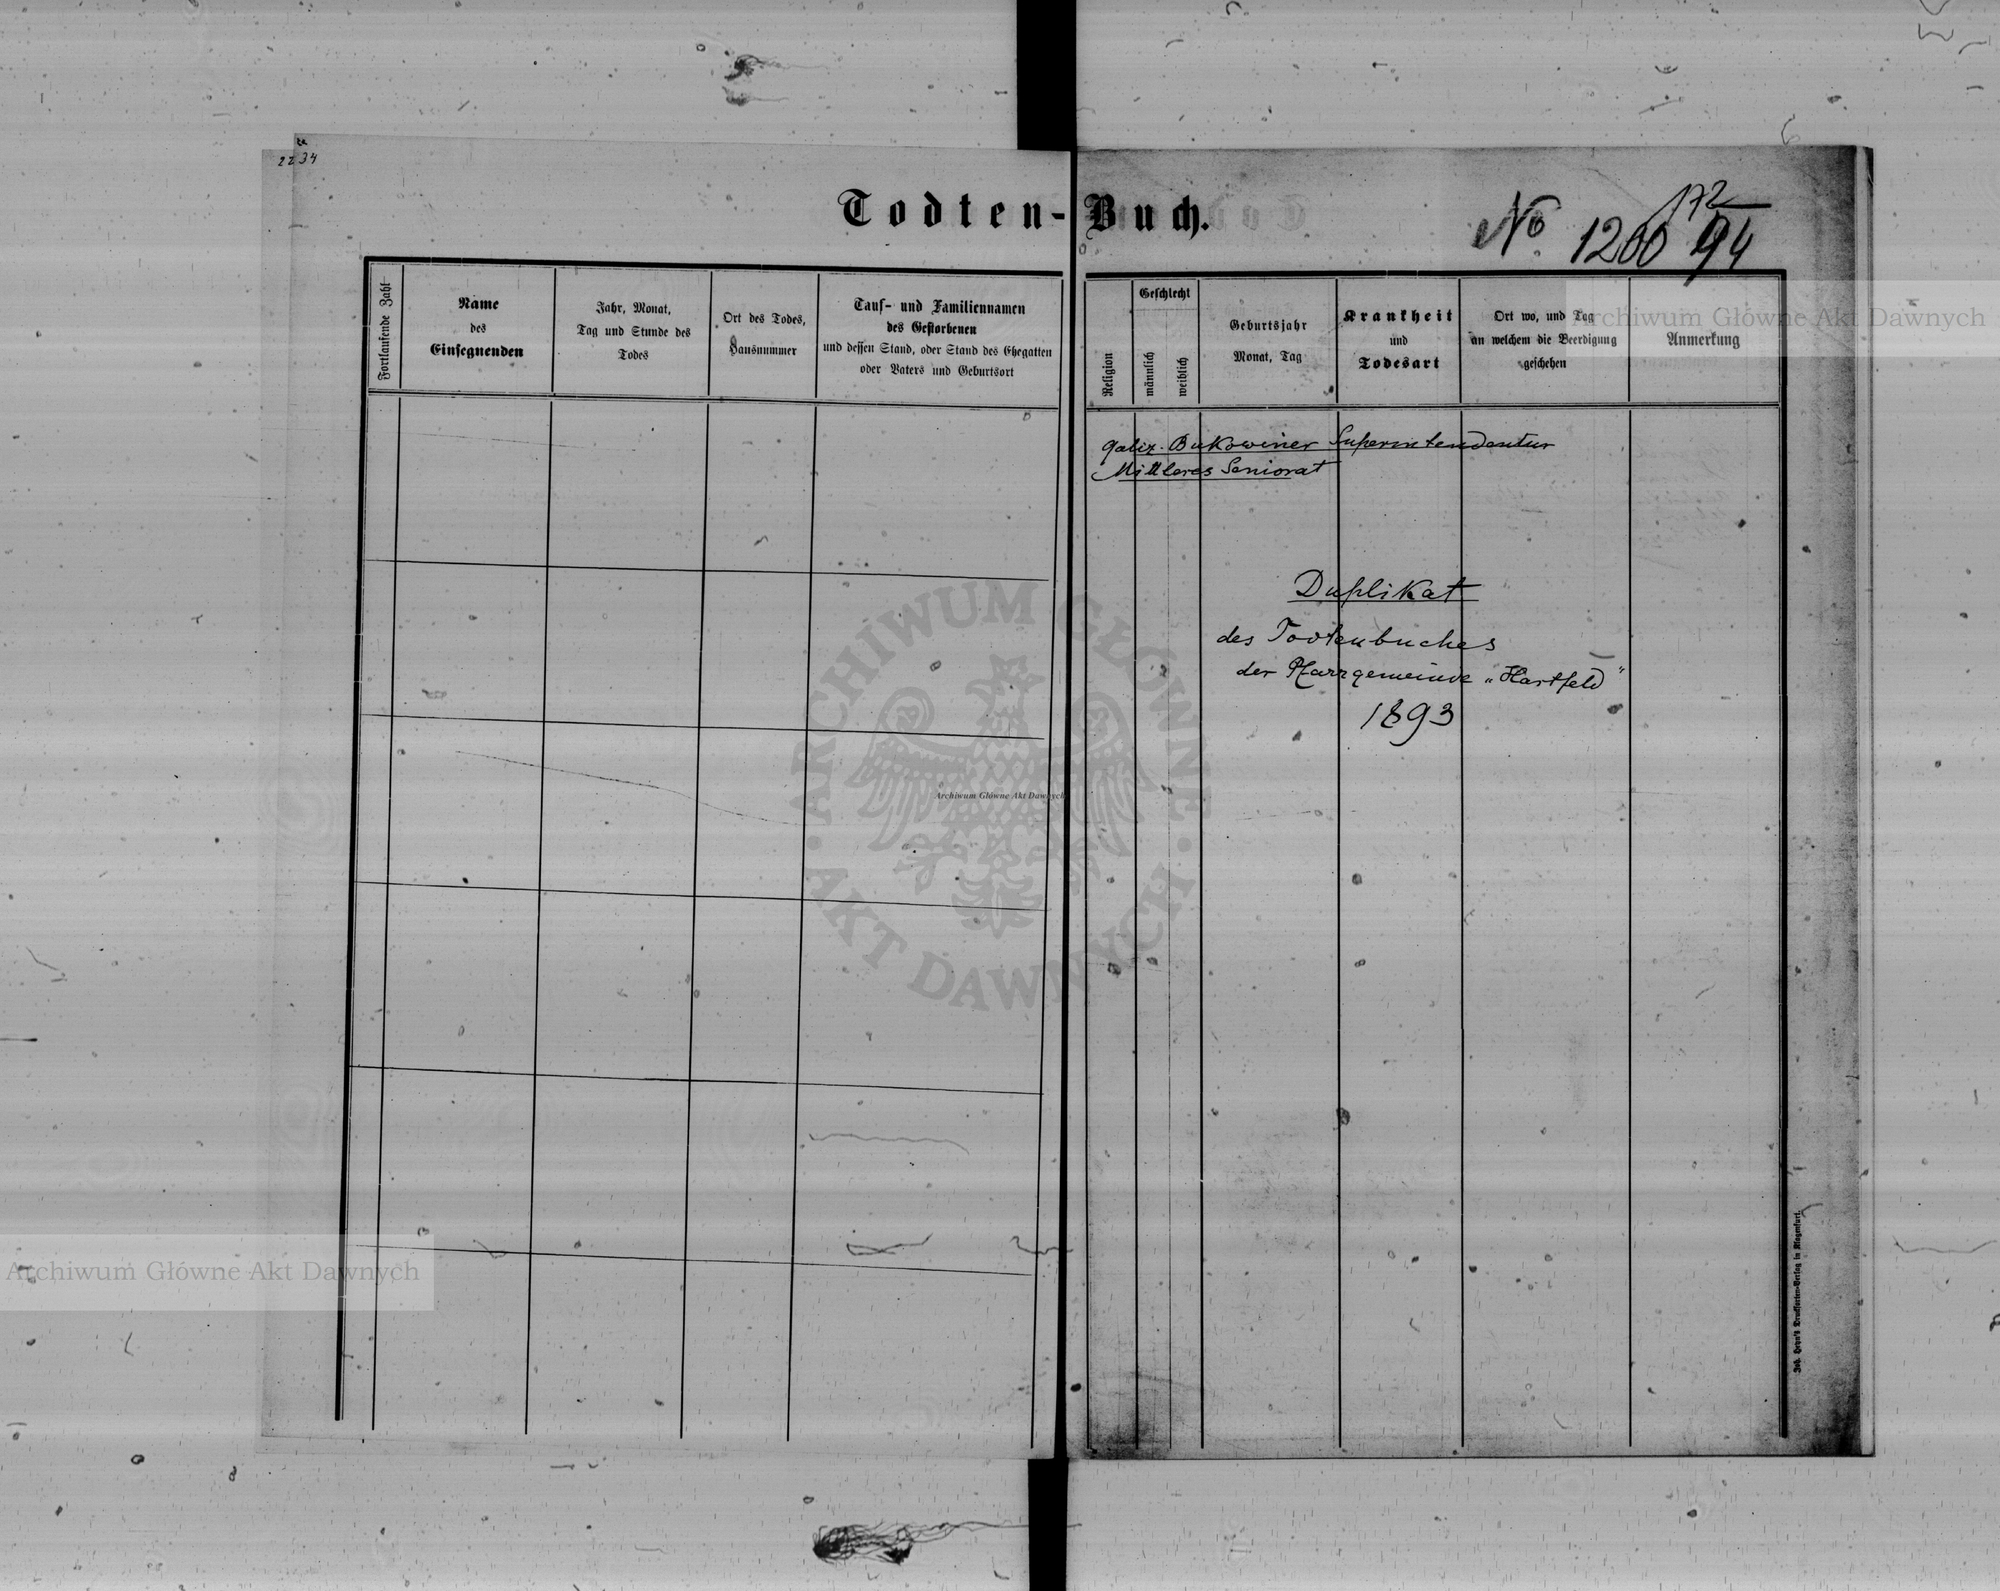 2234
Todten-Buch.
172
No 1200 94
Fortlaufende Zahl
Name
des
Einsegnenden
Jahr, Monat,
Tag und Stunde des
Todes
Ort des Todes,
Hausnummer
Tauf- und Familiennamen
des Gestorbenen
und dessen Stand, oder Stand des Ehegatten
oder Vaters und Geburtsort
Religion
Geschlecht
männlich
weiblich
Geburtsjahr
Monat, Tag
Krankheit
und
Todesart
Ort wo, und Tag
an welchem die Beerdigung
geschehen
Anmerkung
Archiwum Główne Akt Dawnych
galiz. Bukowiner Superintendentur
Mittleres Seniorat
Duplikat
des Todtenbuches
der Pfarrgemeinde „Hartfeld"
1893
ARCHIWUM GŁÓWNE
AKT DAWNYCH
Archiwum Główne Akt Dawnych
Archiwum Główne Akt Dawnych
Joh. Heyn's Drucksorten-Verlag in Klagenfurt.